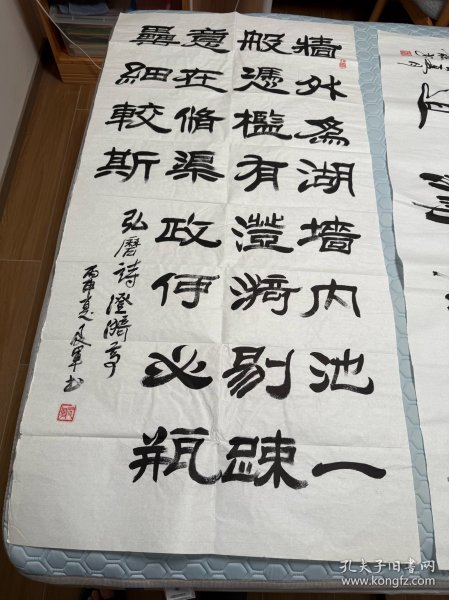 牆外為湖墙内池一
般憑檻有澄漪剔踈
意在脩渠政何必瓶
罍細較斯
弘曆詩澄漪亭
丙申 軍书
孔夫子旧书网
www.kongfz.com